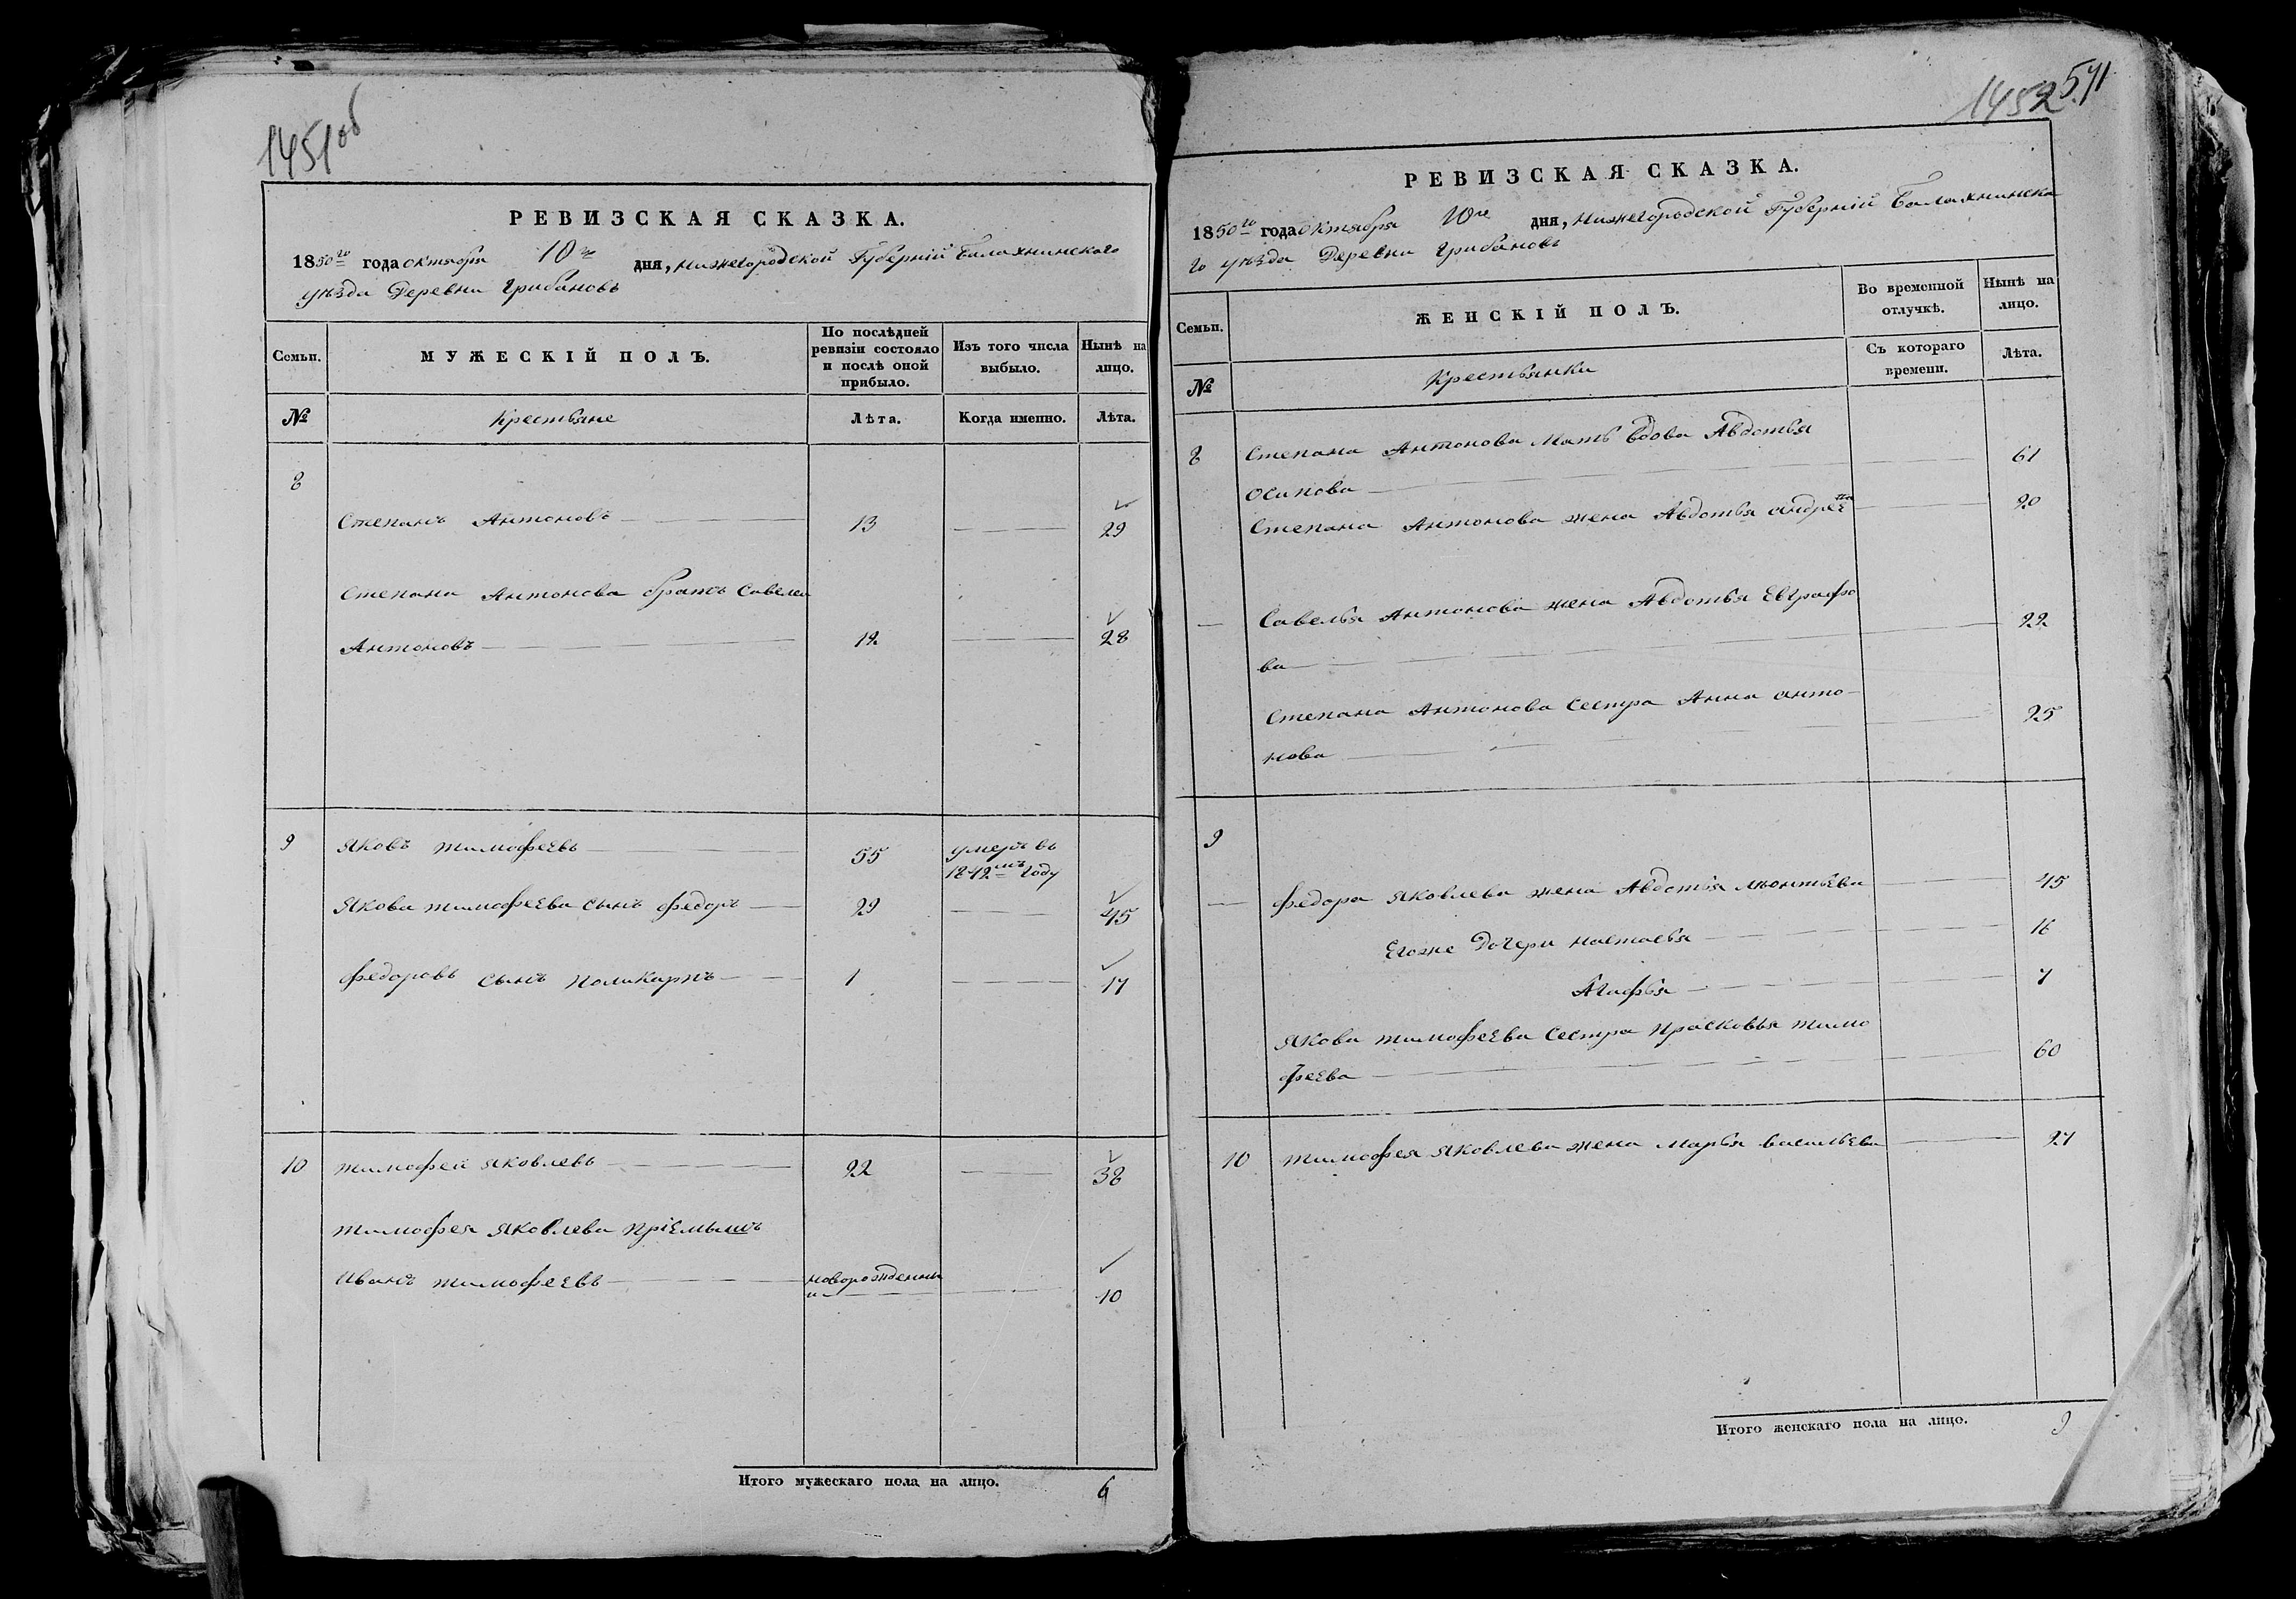 1451об
РЕВИЗСКАЯ СКАЗКА.
1850го года октября 10го дня, Нижегородской Губернiй Балахнинского
уѣзда Деревни Грибановъ
Семьи. МУЖЕСКІЙ ПОЛЪ. По послѣдней ревизіи состояло и послѣ оной прибыло. Изъ того числа выбыло. Нынѣ на лицо.
№ Крестьяне Лѣта. Когда именно. Лѣта.
8
Степанъ Антоновъ 13 29
Степана Антонова братъ Савелеи
Антоновъ 12 28
9 Яковъ Тимофеевъ 55 умеръ въ
1842мъ году
Якова Тимофеева сынъ Федоръ 29 45
Федоровъ сынъ Поликарпъ 1 17
10 Тимофеи Яковлевъ 22 38
Тимофея Яковлева Пріемышъ
Иванъ Тимофеевъ новорожденны
и 10
Итого мужескаго пола на лицо. 6
1452 571
РЕВИЗСКАЯ СКАЗКА.
1850го года октября 10го дня, Нижегородской Губернiй Балахнинска
го уѣзда Деревни Грибановъ
Семьи. ЖЕНСКІЙ ПОЛЪ. Во временной отлучкѣ. Нынѣ на лицо.
№ Крестьянки Съ котораго времени. Лѣта.
8 Степана Антонова Мать вдова Авдотья
Осипова 61
Степана Антонова жена Авдотья Андрее 20
Савелья Антонова жена Авдотья Евграфо
ва 22
Степана Антонова Сестра Анна Анто-
нова 25
9
Федора Яковлева жена Авдотья Леонтьева 45
Егоже Дочери Настасья 16
Агафья 7
Якова Тимофеева Сестра Прасковья Тимо
феева 60
10 Тимофея Яковлева жена Марья Васильева 27
Итого женскаго пола на лицо. 9